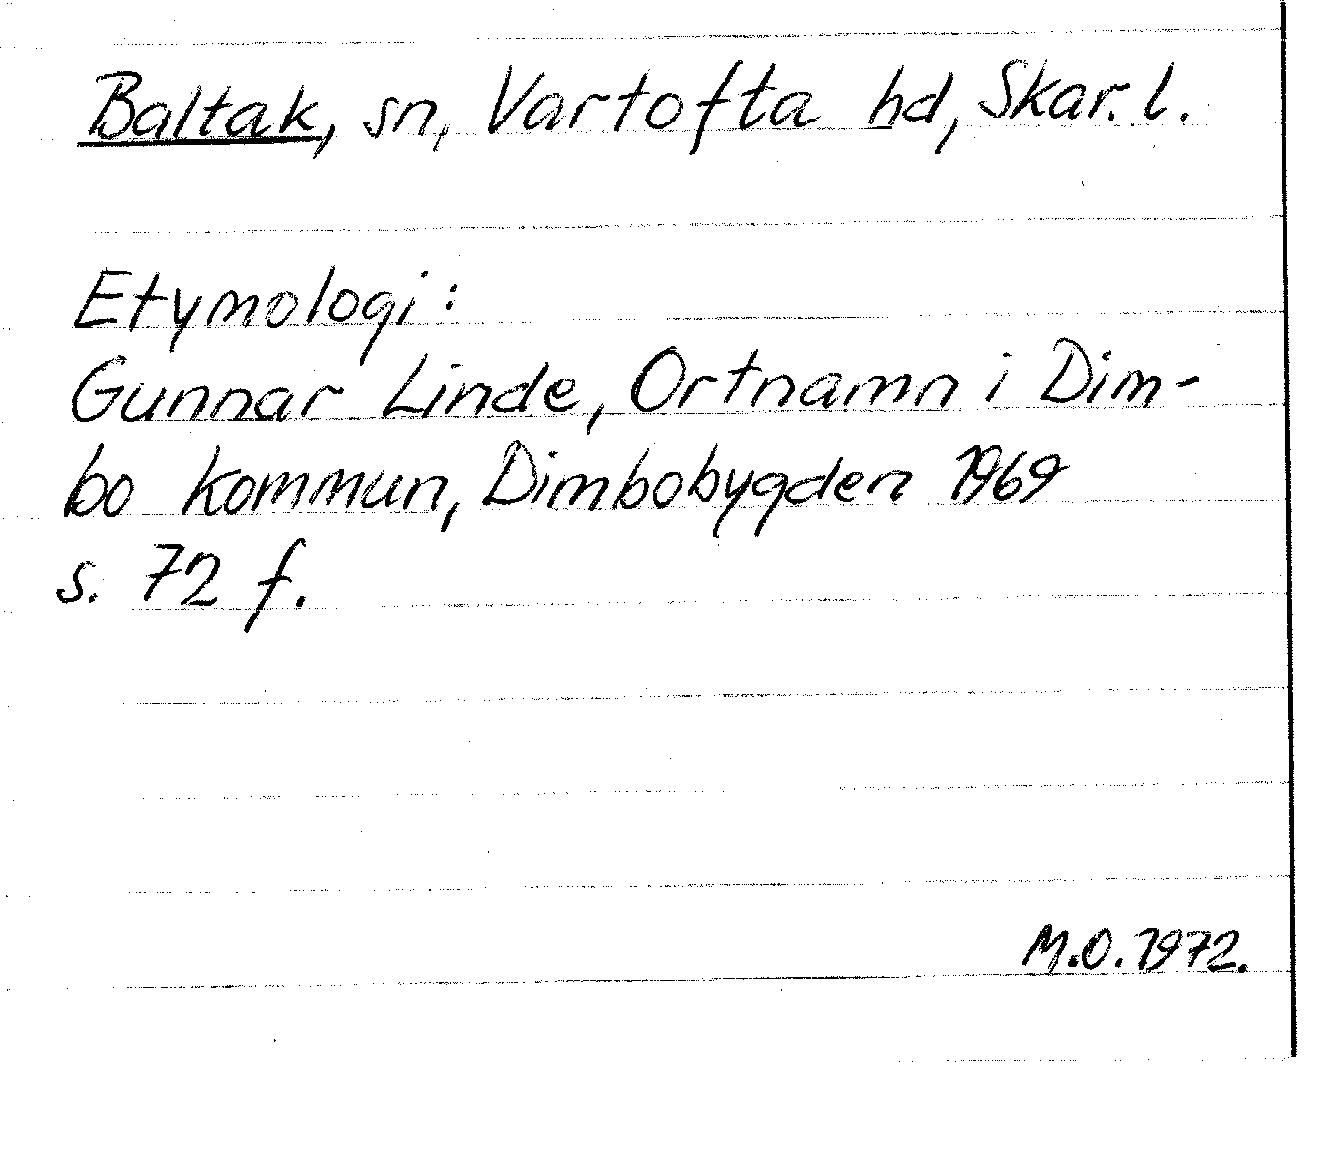 Baltak, sn, Vartofta hd, Skar. l.
Etymologi:
Gunnar Linde, Ortnamn i Dim-
bo kommun, Dimbobygden 1969
s. 72 f.
M.O. 1972.